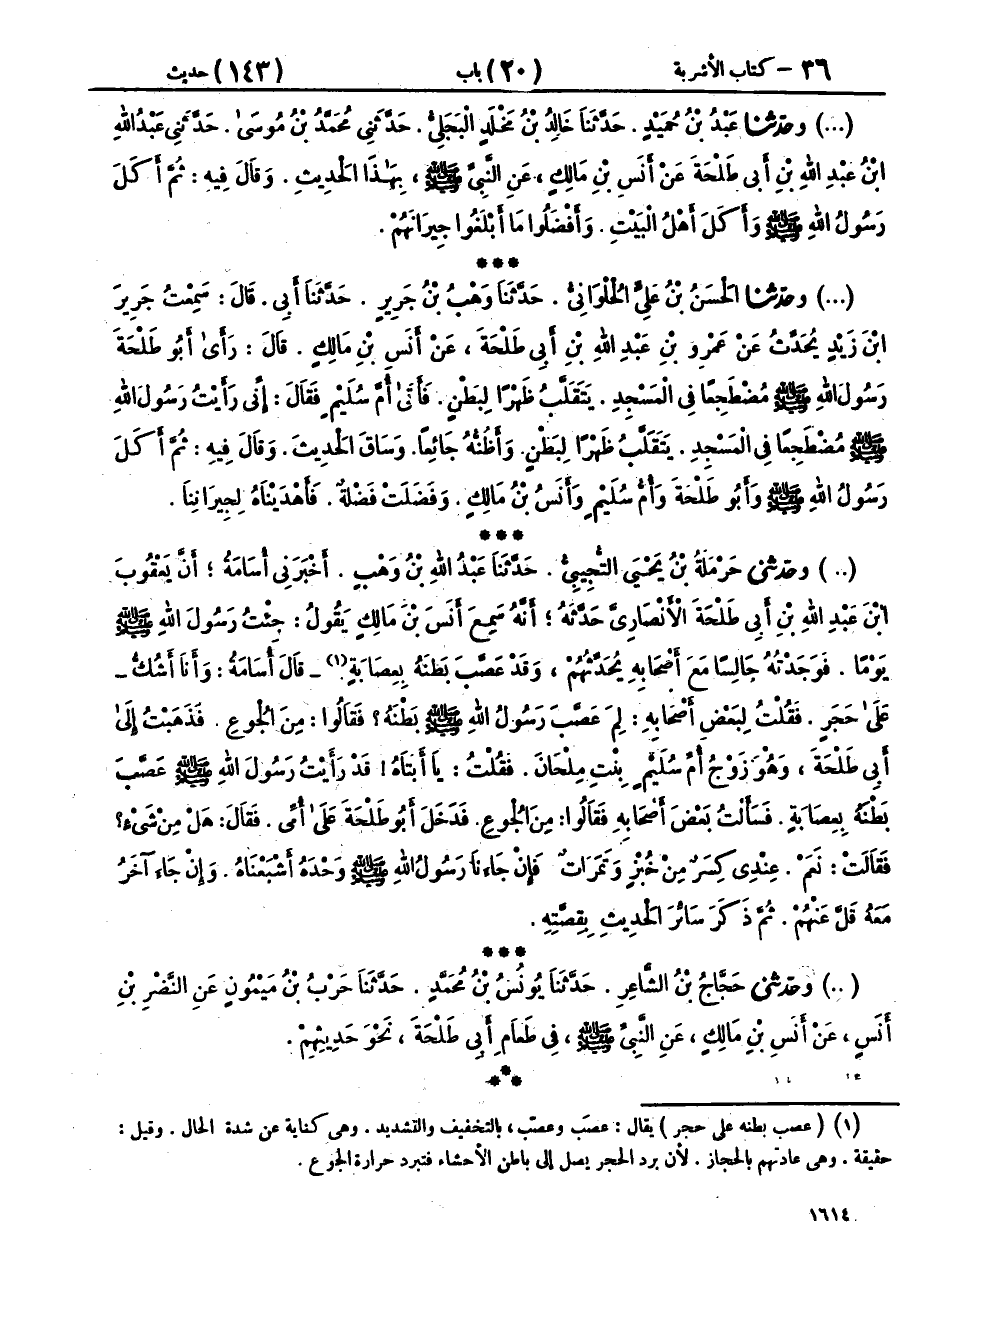 ٣٦ – كتاب الأشربة (٢٠) باب (١٤٣) حديث
(...) وحَدَّثَنَا عَبْدُ بْنُ حُمَيْدٍ . حَدَّثَنَا خَالِدُ بْنُ مَخْلَدٍ الْبَجَلِيُّ . حَدَّثَنِي مُحَمَّدُ بْنُ مُوسَىٰ . حَدَّثَنِي عَبْدُ اللهِ
ابْنُ عَبْدِ اللهِ بْنِ أَبِي طَلْحَةَ عَنْ أَنَسِ بْنِ مَالِكٍ ، عَنِ النَّبِيِّ ﷺ ، بِهَٰذَا الْحَدِيثِ . وَقَالَ فِيهِ : ثُمَّ أَكَلَ
رَسُولُ اللهِ ﷺ وَأَكَلَ أَهْلُ الْبَيْتِ . وَأَفْضَلُوا مَا أَبْلَغُوا جِيرَانَهُمْ .
***
(...) وحَدَّثَنَا الْحَسَنُ بْنُ عَلِيٍّ الْحُلْوَانِيُّ . حَدَّثَنَا وَهْبُ بْنُ جَرِيرٍ . حَدَّثَنَا أَبِي . قَالَ : سَمِعْتُ جَرِيرَ
ابْنَ زَيْدٍ يُحَدِّثُ عَنْ عَمْرِو بْنِ عَبْدِ اللهِ بْنِ أَبِي طَلْحَةَ ، عَنْ أَنَسِ بْنِ مَالِكٍ . قَالَ : رَأَىٰ أَبُو طَلْحَةَ
رَسُولَ اللهِ ﷺ مُضْطَجِعًا فِي الْمَسْجِدِ . يَتَقَلَّبُ ظَهْرًا لِبَطْنٍ . فَأَتَىٰ أُمَّ سُلَيْمٍ فَقَالَ : إِنِّي رَأَيْتُ رَسُولَ اللهِ
ﷺ مُضْطَجِعًا فِي الْمَسْجِدِ . يَتَقَلَّبُ ظَهْرًا لِبَطْنٍ . وَأَظُنُّهُ جَائِعًا. وَسَاقَ الْحَدِيثَ . وَقَالَ فِيهِ : ثُمَّ أَكَلَ
رَسُولُ اللهِ ﷺ وَأَبُو طَلْحَةَ وَأُمُّ سُلَيْمٍ وَأَنَسُ بْنُ مَالِكٍ . وَفَضَلَتْ فَضْلَةٌ . فَأَهْدَيْنَاهُ لِجِيرَانِنَا .
***
(..) وحَدَّثَنِي حَرْمَلَةُ بْنُ يَحْيَى التُّجِيبِيُّ . حَدَّثَنَا عَبْدُ اللهِ بْنُ وَهْبٍ . أَخْبَرَنِي أُسَامَةُ ؛ أَنَّ يَعْقُوبَ
ابْنَ عَبْدِ اللهِ بْنِ أَبِي طَلْحَةَ الْأَنْصَارِيَّ حَدَّثَهُ ؛ أَنَّهُ سَمِعَ أَنَسَ بْنَ مَالِكٍ يَقُولُ : جِئْتُ رَسُولَ اللهِ ﷺ
يَوْمًا . فَوَجَدْتُهُ جَالِسًا مَعَ أَصْحَابِهِ يُحَدِّثُهُمْ ، وَقَدْ عَصَّبَ بَطْنَهُ بِعِصَابَةٍ (١) ــ قَالَ أُسَامَةُ : وَأَنَا أَشُكُّ ــ
عَلَىٰ حَجَرٍ . فَقُلْتُ لِبَعْضِ أَصْحَابِهِ : لِمَ عَصَّبَ رَسُولُ اللهِ ﷺ بَطْنَهُ ؟ فَقَالُوا : مِنَ الْجُوعِ . فَذَهَبْتُ إِلَىٰ
أَبِي طَلْحَةَ ، وَهُوَ زَوْجُ أُمِّ سُلَيْمٍ بِنْتِ مِلْحَانَ . فَقُلْتُ : يَا أَبَتَاهُ ! قَدْ رَأَيْتُ رَسُولَ اللهِ ﷺ عَصَّبَ
بَطْنَهُ بِعِصَابَةٍ . فَسَأَلْتُ بَعْضَ أَصْحَابِهِ فَقَالُوا: مِنَ الْجُوعِ. فَدَخَلَ أَبُو طَلْحَةَ عَلَىٰ أُمِّي . فَقَالَ: هَلْ مِنْ شَيْءٍ؟
فَقَالَتْ : نَعَمْ . عِنْدِي كِسَرٌ مِنْ خُبْزٍ وَتَمَرَاتٌ فَإِنْ جَاءَنَا رَسُولُ اللهِ ﷺ وَحْدَهُ أَشْبَعْنَاهُ . وَإِنْ جَاءَ آخَرُ
مَعَهُ قَلَّ عَنْهُمْ . ثُمَّ ذَكَرَ سَائِرَ الْحَدِيثِ بِقِصَّتِهِ .
***
(..) وحَدَّثَنِي حَجَّاجُ بْنُ الشَّاعِرِ . حَدَّثَنَا يُونُسُ بْنُ مُحَمَّدٍ . حَدَّثَنَا حَرْبُ بْنُ مَيْمُونٍ عَنِ النَّضْرِ بْنِ
أَنَسٍ ، عَنْ أَنَسِ بْنِ مَالِكٍ ، عَنِ النَّبِيِّ ﷺ ، فِي طَعَامِ أَبِي طَلْحَةَ ، نَحْوَ حَدِيثِهِمْ .
***
(١) ( عصب بطنه على حجر ) يقال : عصَب وعصّب ، بالتخفيف والتشديد . وهى كناية عن شدة الحال . وقيل :
حقيقة . وهى عادتهم بالحجاز . لأن برد الحجر يصل إلى باطن الأحشاء فتبرد حرارة الجوع .
١٦١٤